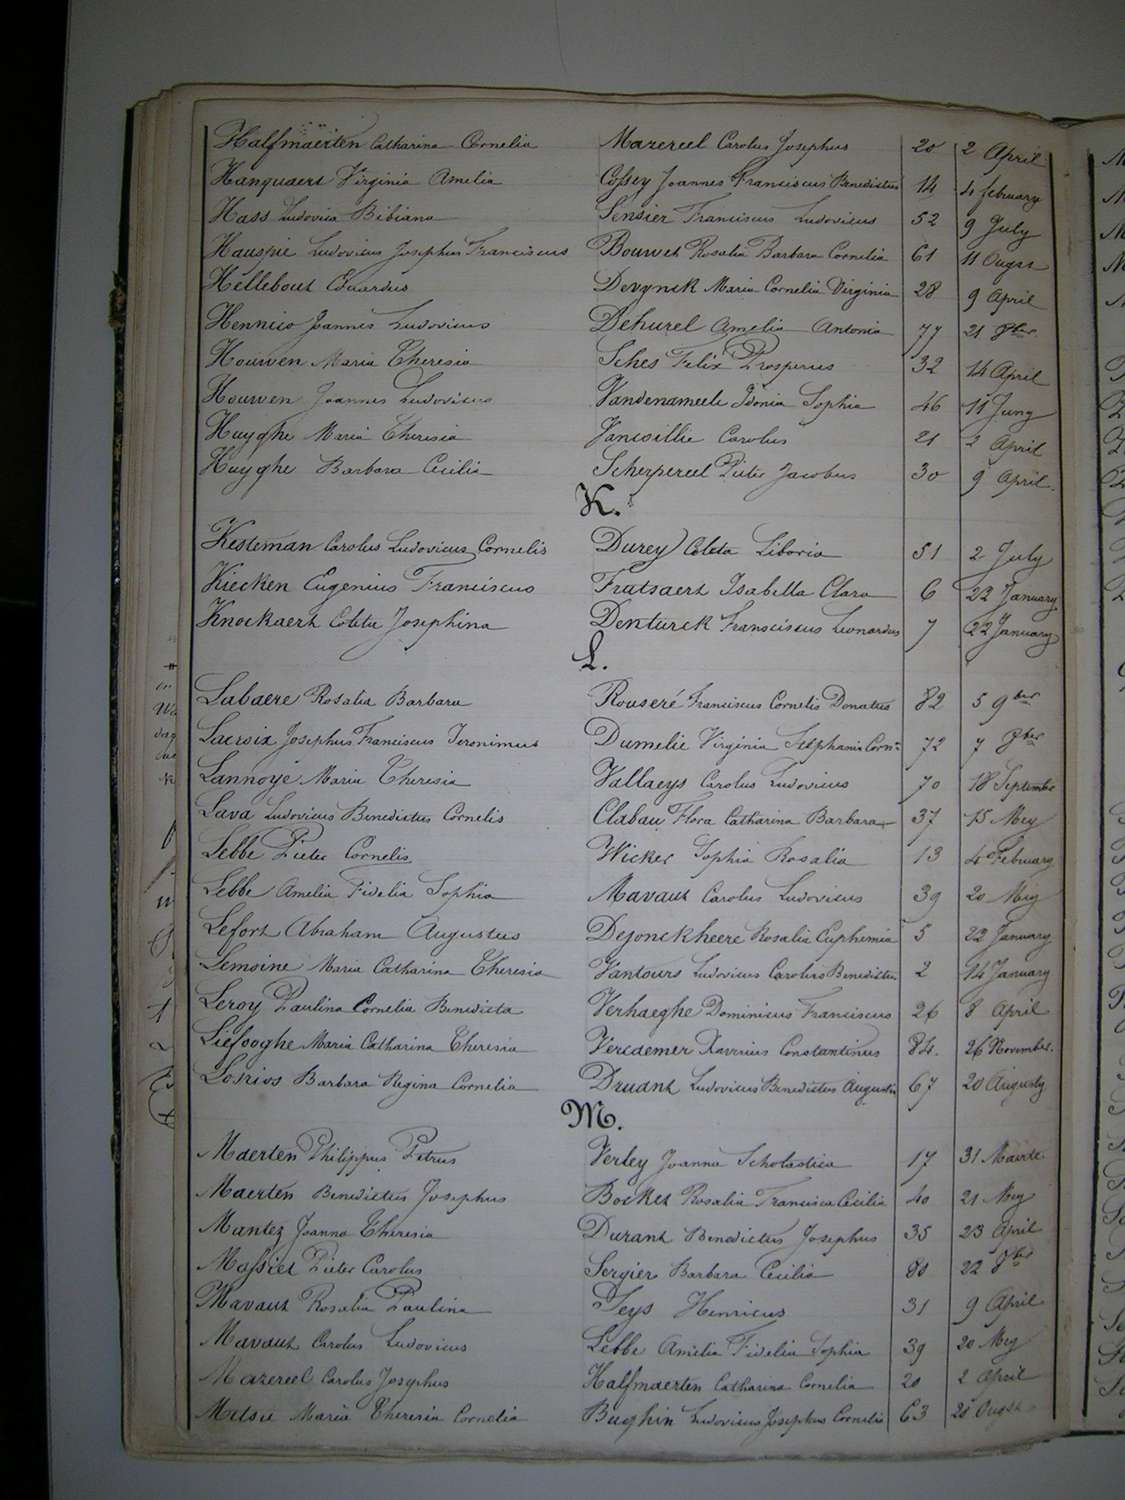 Halfmaerten Catharina Cornelia Mazereel Carolus Josephus 20 2 April
Hanquaert Virginia Amelia Cossey Joannes Franciscus Benedictus 14 4 february
Hass Ludovica Bibiana Sensier Franciscus Ludovicus 52 9 July
Hauspie Ludovicus Josephus Franciscus Bouwet Rosalia Barbara Cornelia 61 11 Ougst
Hellebout Eduardus Devynck Maria Cornelia Virginia 28 9 April
Hennico Joannes Ludovicus Dehurel Amelia Antonia 77 21 8ber
Houwen Maria Theresia Sches Felix Prosperus 32 14 April
Houwen Joannes Ludovicus Vandenameele Idonia Sophia 46 11 Juny
Huyghe Maria Theresia Vancoillie Carolus 21 2 April
Huyghe Barbara Cecilia Scherpereel Pieter Jacobus 30 9 April.
K.
Kesteman Carolus Ludovicus Cornelis Durey Coleta Liboria 51 2 July
Kiecken Eugenius Franciscus Fratsaert Isabella Clara 6 22 January
Knockaert Coleta Josephina Denturck Fransciscus Leonardus 7 22 January
L.
Labaere Rosalia Barbara Rouseré Franciscus Cornelis Donatus 82 5 9ber
Lacroix Josephus Franciscus Jeronimus Dumelie Virginia Stephania Corn.a 72 7 8ber
Lannoye Maria Theresia Vallaeys Carolus Ludovicus 70 18 Septembre
Lava Ludovicus Benedictus Cornelis Clabau Flora Catharina Barbara 37 15 Mey
Lebbe Pieter Cornelis Wicker Sophia Rosalia 13 4 February
Lebbe Amelia Fidelia Sophia Mavaut Carolus Ludovicus 39 20 Mey
Lefort Abraham Augustus Dejonckheere Rosalia Euphemia 5 22 January
Lemoine Maria Catharina Theresia Vantours Ludovicus Carolus Benedictus 2 14 January
Leroy Paulina Cornelia Benedicta Verhaeghe Dominicus Franciscus 26 8 April
Liefooghe Maria Catharina Theresia Vercaemer Xaverius Constantinus 84. 26 November.
Losrios Barbara Regina Cornelia Druant Ludovicus Benedictus Augustin 67 20 Augusty
M.
Maerten Philippus Petrus Verley Joanna Scholastica 17 31 Maerte
Maerten Benedictus Josephus Bocket Rosalia Francisca Cecilia 40 21 Mey
Mantez Joanna Theresia Durant Benedictus Josephus 35 23 April
Massiet Pieter Carolus Sergier Barbara Cecilia 80 22 8ber
Mavaut Rosalia Paulina Seys Henricus 31 9 April
Mavaut Carolus Ludovicus Lebbe Amelia Fidelia Sophia 39 20 Mey
Mazereel Carolus Josephus Halfmaerten Catharina Cornelia 20 2 April
Metsu Maria Theresia Cornelia Bughin Ludovicus Josephus Cornelis 63 20 Ougst